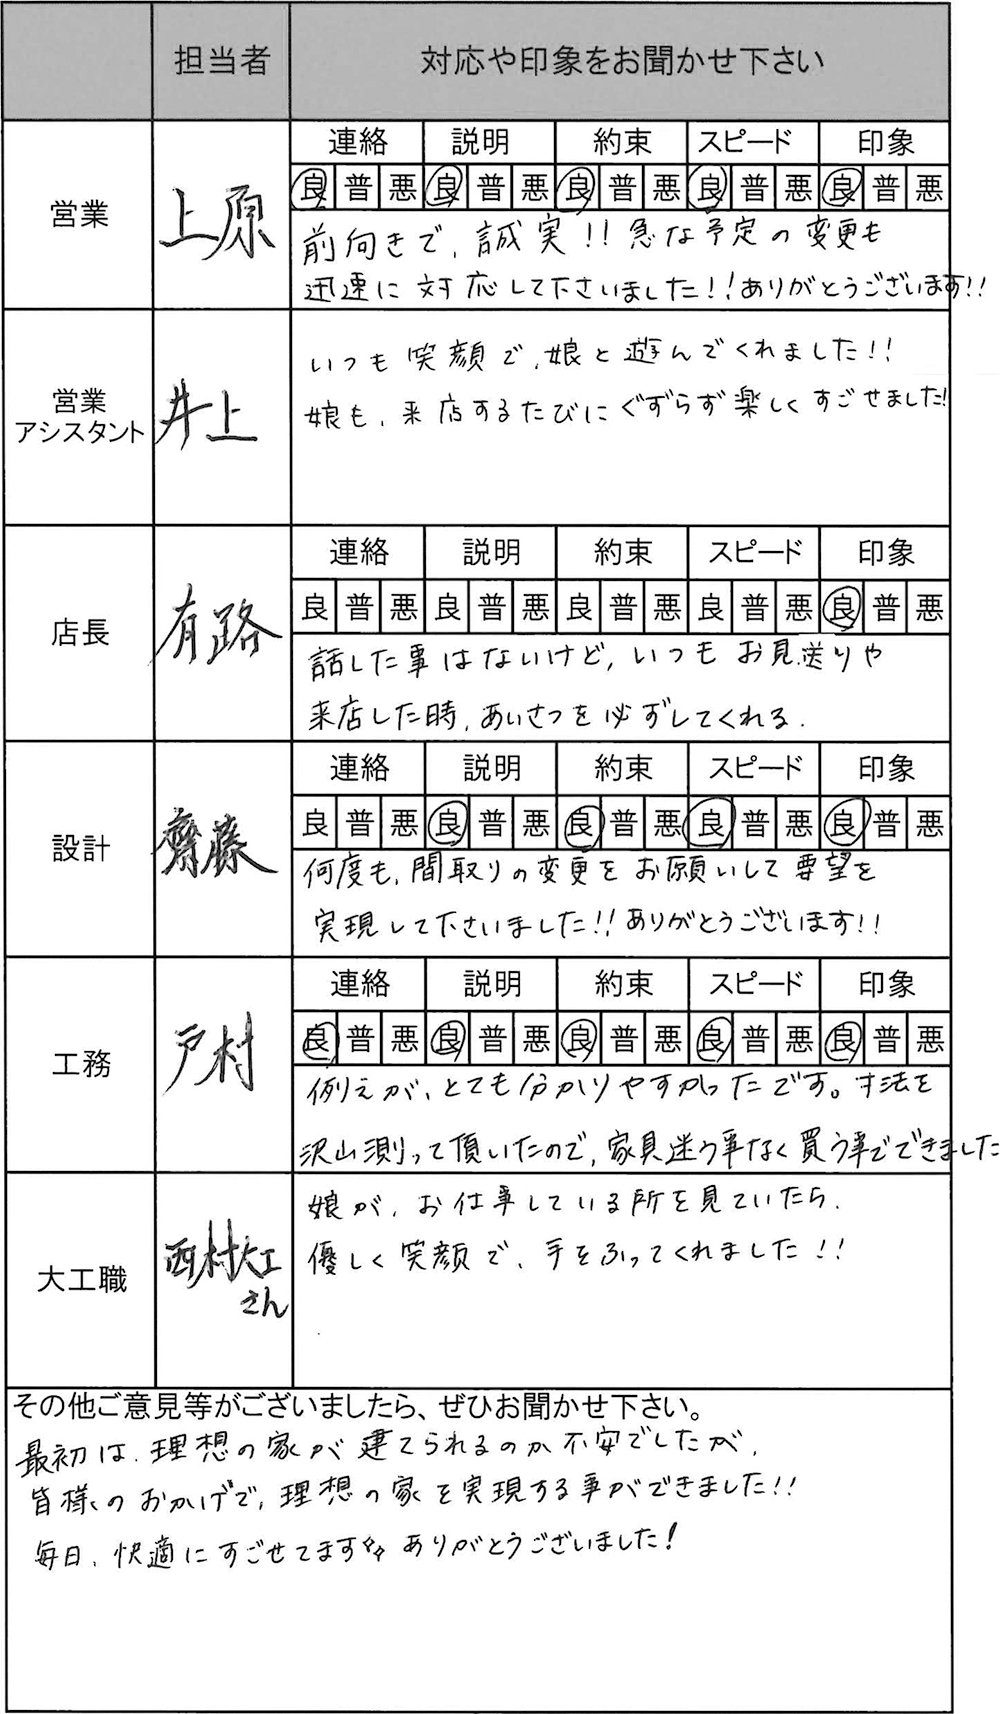 担当者 対応や印象をお聞かせ下さい
連絡 説明 約束 スピード 印象
営業 上原 良 普 悪 良 普 悪 良 普 悪 良 普 悪 良 普 悪
前向きで、誠実!!急な予定の変更も
迅速に対応して下さいました!!ありがとうございます!!
営業
アシスタント 井上
いつも笑顔で、娘と遊んでくれました!!
娘も、来店するたびにぐずらず楽しくすごせました!
連絡 説明 約束 スピード 印象
店長 有路 良 普 悪 良 普 悪 良 普 悪 良 普 悪 良 普 悪
話した事はないけど、いつもお見送りや
来店した時、あいさつを必ずしてくれる.
連絡 説明 約束 スピード 印象
設計 齋藤 良 普 悪 良 普 悪 良 普 悪 良 普 悪 良 普 悪
何度も、間取りの変更をお願いして要望を
実現して下さいました!!ありがとうございます!!
連絡 説明 約束 スピード 印象
工務 戸村 良 普 悪 良 普 悪 良 普 悪 良 普 悪 良 普 悪
例えが、とても分かりやすかったです。寸法を
沢山測って頂いたので、家具迷う事なく買う事でできました
大工職 西村大工
さん
娘が、お仕事している所を見ていたら、
優しく笑顔で、手をふってくれました!!
その他ご意見等がございましたら、ぜひお聞かせ下さい。
最初は、理想の家が建てられるのか不安でしたが、
皆様のおかげで、理想の家を実現する事ができました!!
毎日、快適にすごせてます ありがとうございました!